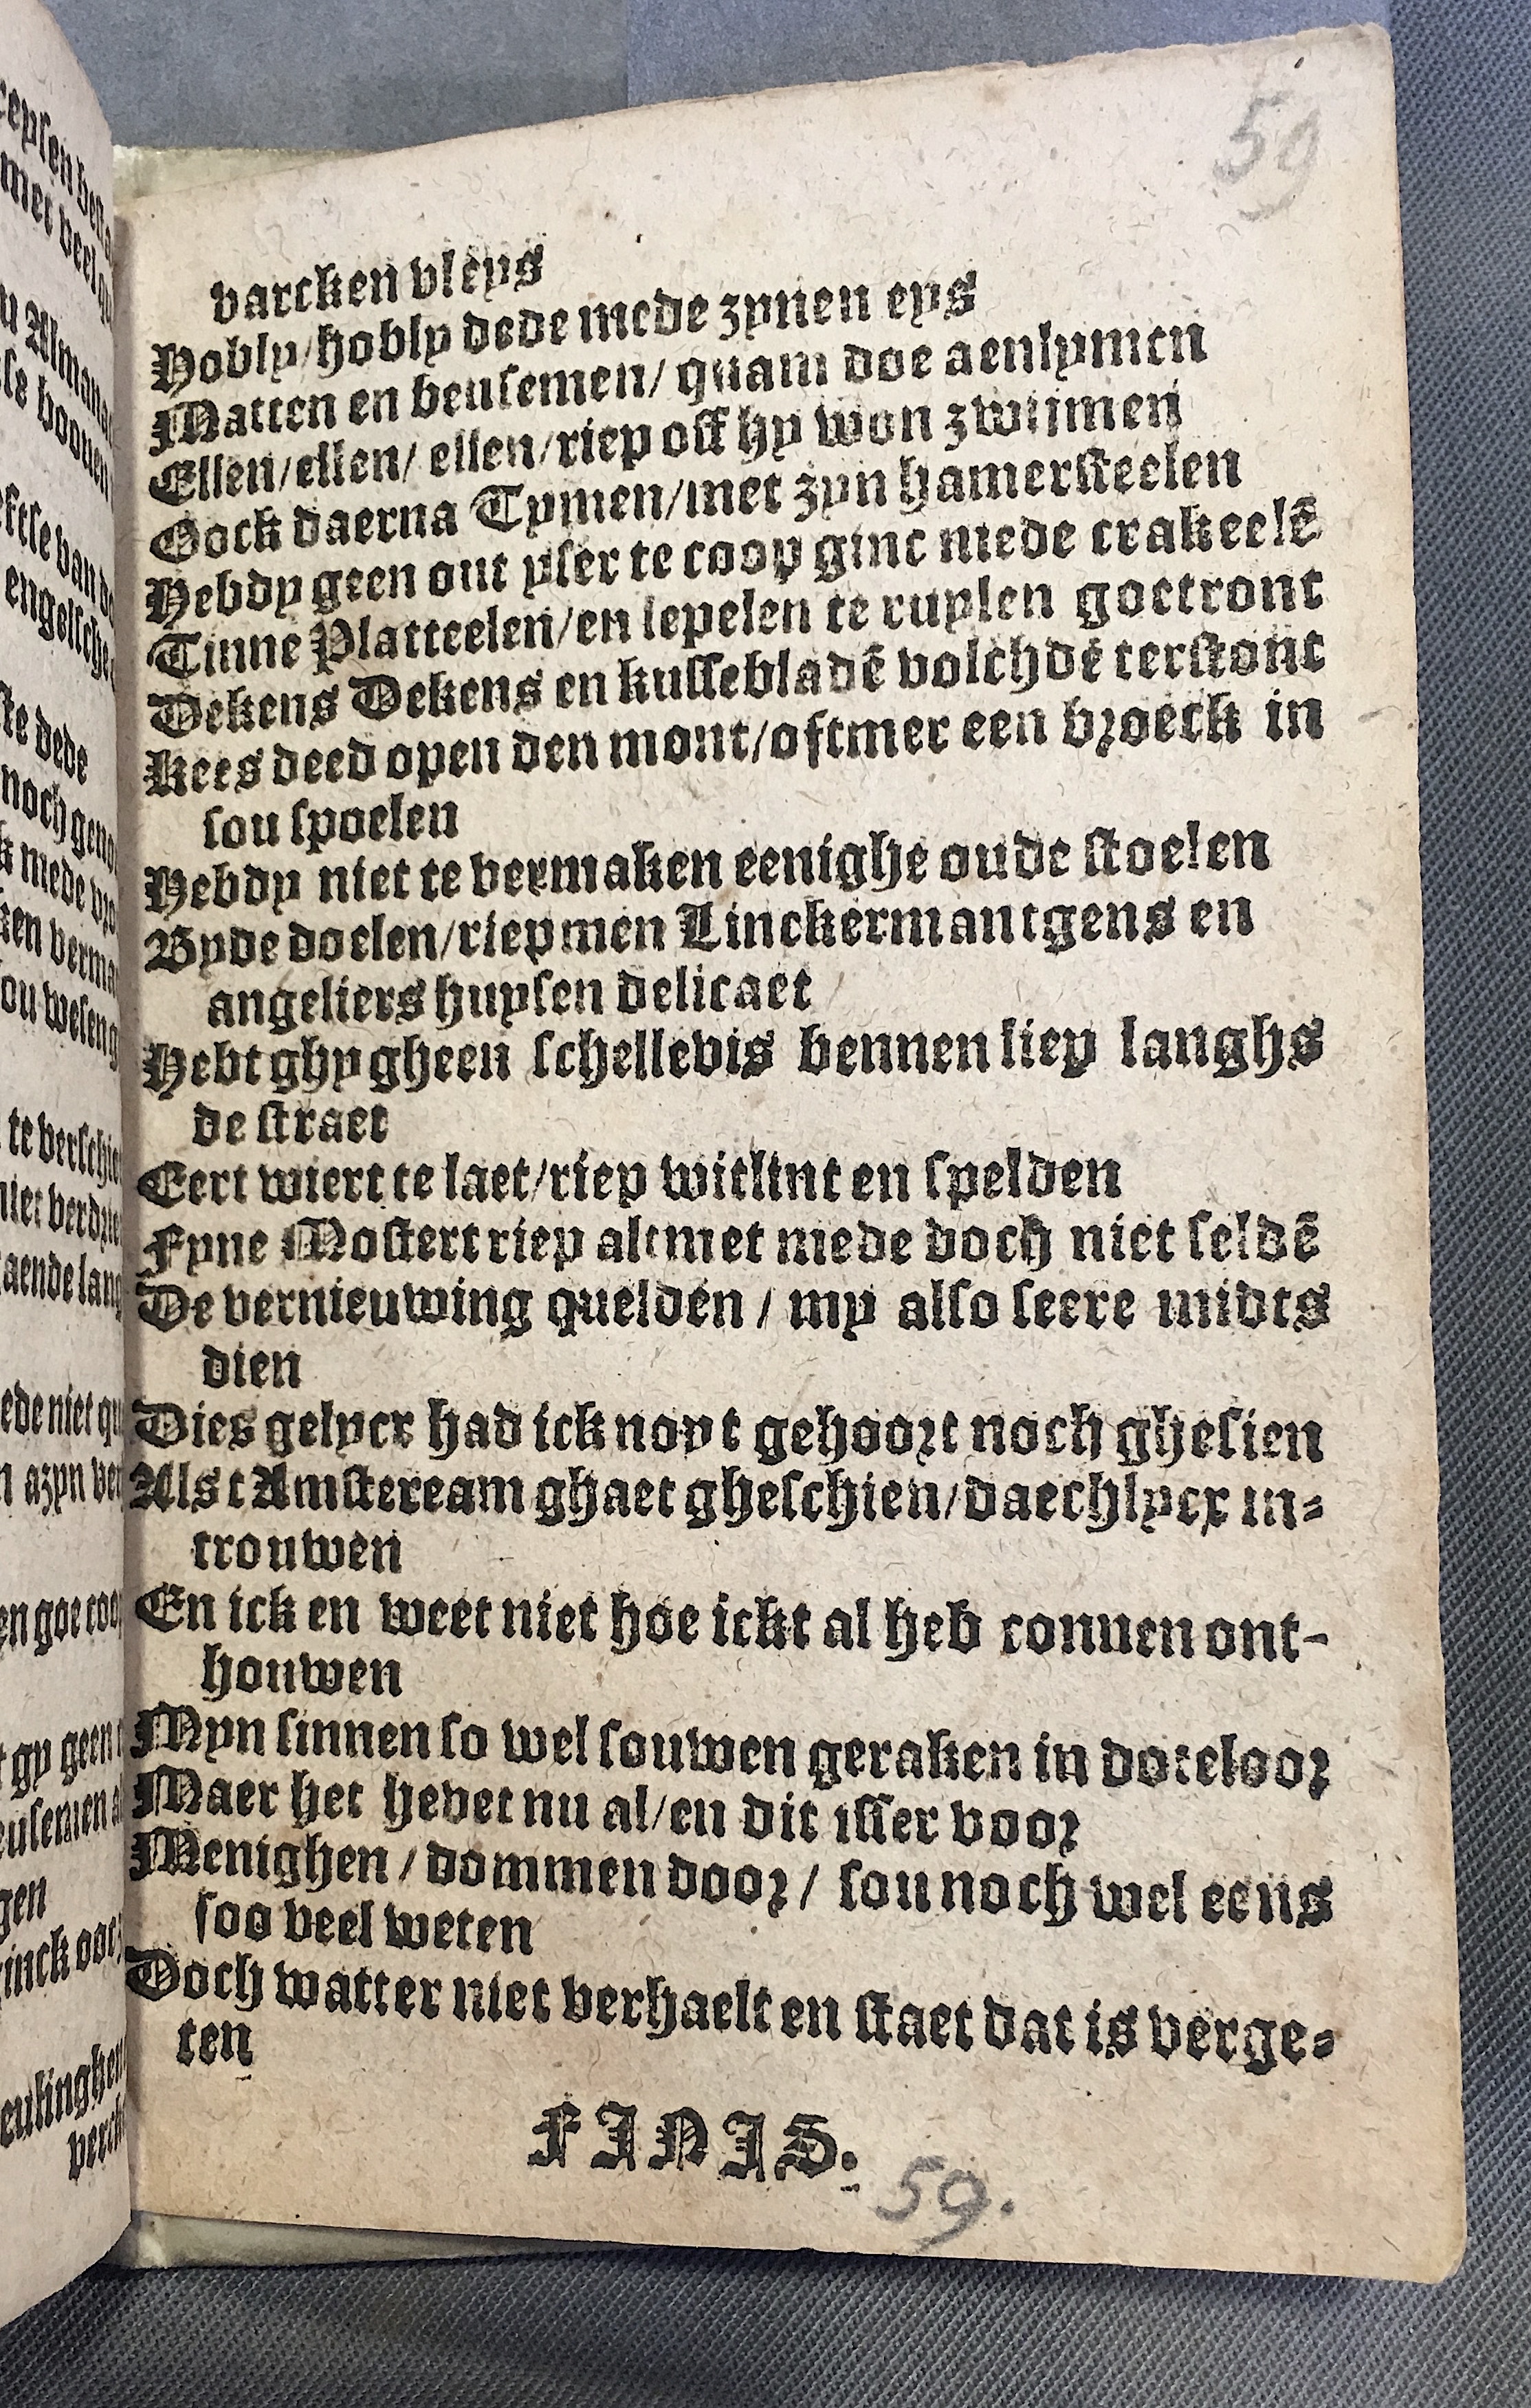 59
varcken vleys
Hobly/hobly dede mede zynen eys
Matten en beusemen/ quam doe aenlymen
Ellen/ellen/ ellen/riep off hy won zwijmen
Oock daerna Tymen/met zyn hamersteelen
Hebdy geen out yser te coop ginc mede crakeelē
Tinne Platteelen/en lepelen te ruylen goetront
Dekens Dekens en kussebladē volchdē terstont
Kees deed open den mont/oftmer een broeck in
sou spoelen
Hebdy niet te vermaken eenighe oude stoelen
Byde doelen/riepmen Linckermantgens en
angeliers huysen delicaet
Hebt ghy gheen schellevis bennen liep langhs
de straet
Eert wiert te laet/riep witlint en spelden
Fyne Mostert riep altmet mede doch niet seldē
De vernieuwing quelden / my also seere midts
dien
Dies gelycx had ick noyt gehoort noch ghesien
Als t Amstereram ghaet gheschien/daechlycx in-
trouwen
En ick en weet niet hoe ickt al heb connen ont-
houwen
Myn sinnen so wel souwen geraken in doteloor
Maer het hevet nu al/en dit isser voor
Menighen / dommen door / sou noch wel eens
soo veel weten
Doch watter niet verhaelt en staet dat is verge-
ten
FINIS.
59.